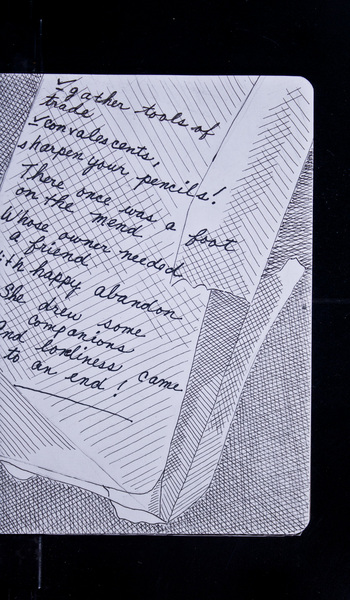 ✓gather tools of
trade
✓convalescents,
sharpen your pencils!
There once was a foot
on the mend
Whose owner needed
a friend
With happy abandon
She drew some
companions
And lonliness came
to an end!